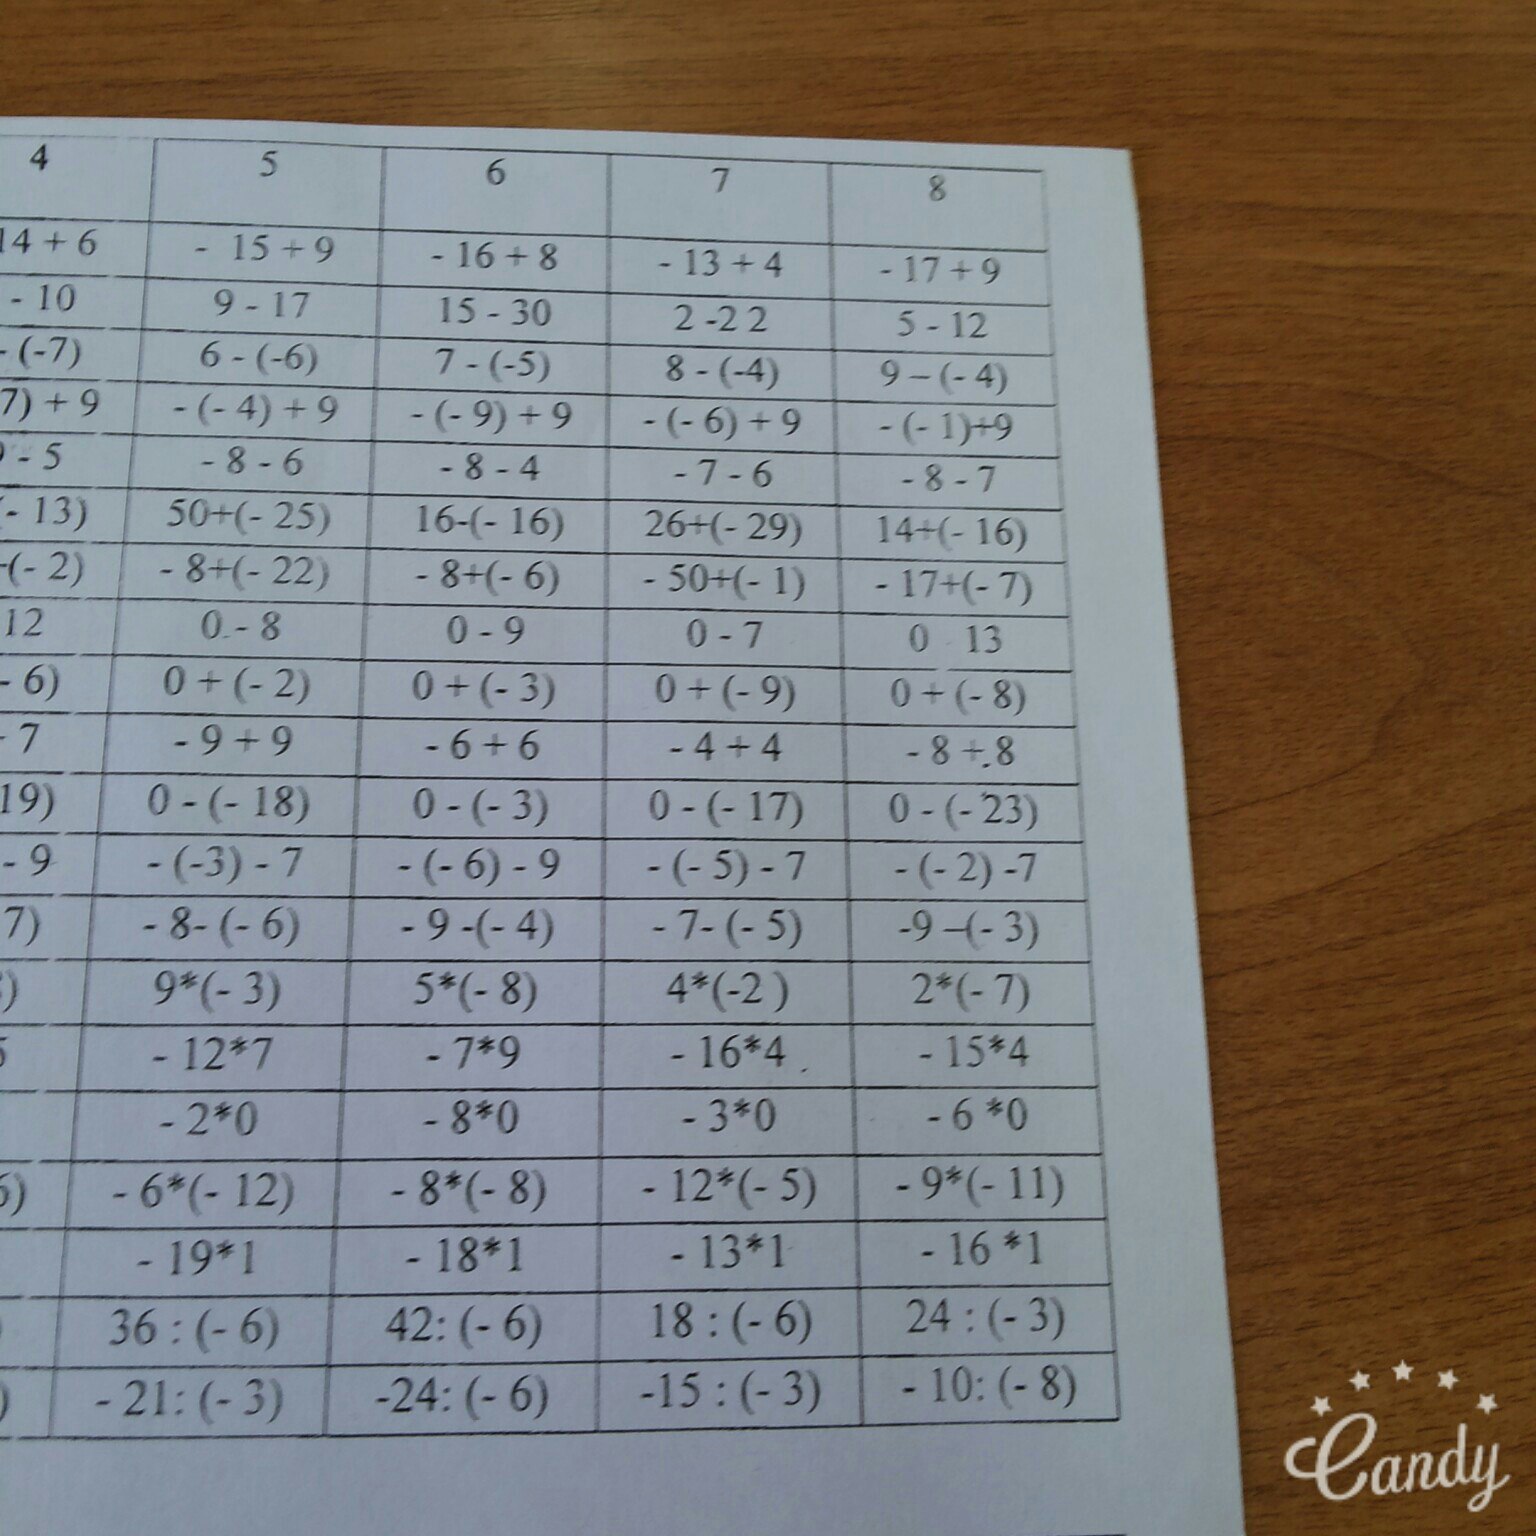 4 5 6 7 8
14 + 6 - 15 + 9 - 16 + 8 - 13 + 4 - 17 + 9
- 10 9 - 17 15 - 30 2 -2 2 5 - 12
- (-7) 6 - (-6) 7 - (-5) 8 - (-4) 9 – (- 4)
7) + 9 - (- 4) + 9 - (- 9) + 9 - (- 6) + 9 - (- 1)+9
- 5 - 8 - 6 - 8 - 4 - 7 - 6 - 8 - 7
(- 13) 50+(- 25) 16-(- 16) 26+(- 29) 14+(- 16)
(- 2) - 8+(- 22) - 8+(- 6) - 50+(- 1) - 17+(- 7)
12 0 - 8 0 - 9 0 - 7 0 13
- 6) 0 + (- 2) 0 + (- 3) 0 + (- 9) 0 + (- 8)
- 7 - 9 + 9 - 6 + 6 - 4 + 4 - 8 + 8
19) 0 - (- 18) 0 - (- 3) 0 - (- 17) 0 - (- 23)
- 9 - (-3) - 7 - (- 6) - 9 - (- 5) - 7 - (- 2) -7
7) - 8- (- 6) - 9 -(- 4) - 7- (- 5) -9 –(- 3)
) 9*(- 3) 5*(- 8) 4*(-2 ) 2*(- 7)
- 12*7 - 7*9 - 16*4 - 15*4
- 2*0 - 8*0 - 3*0 - 6 *0
) - 6*(- 12) - 8*(- 8) - 12*(- 5) - 9*(- 11)
- 19*1 - 18*1 - 13*1 - 16 *1
) 36 : (- 6) 42: (- 6) 18 : (- 6) 24 : (- 3)
) - 21: (- 3) -24: (- 6) -15 : (- 3) - 10: (- 8)
Candy